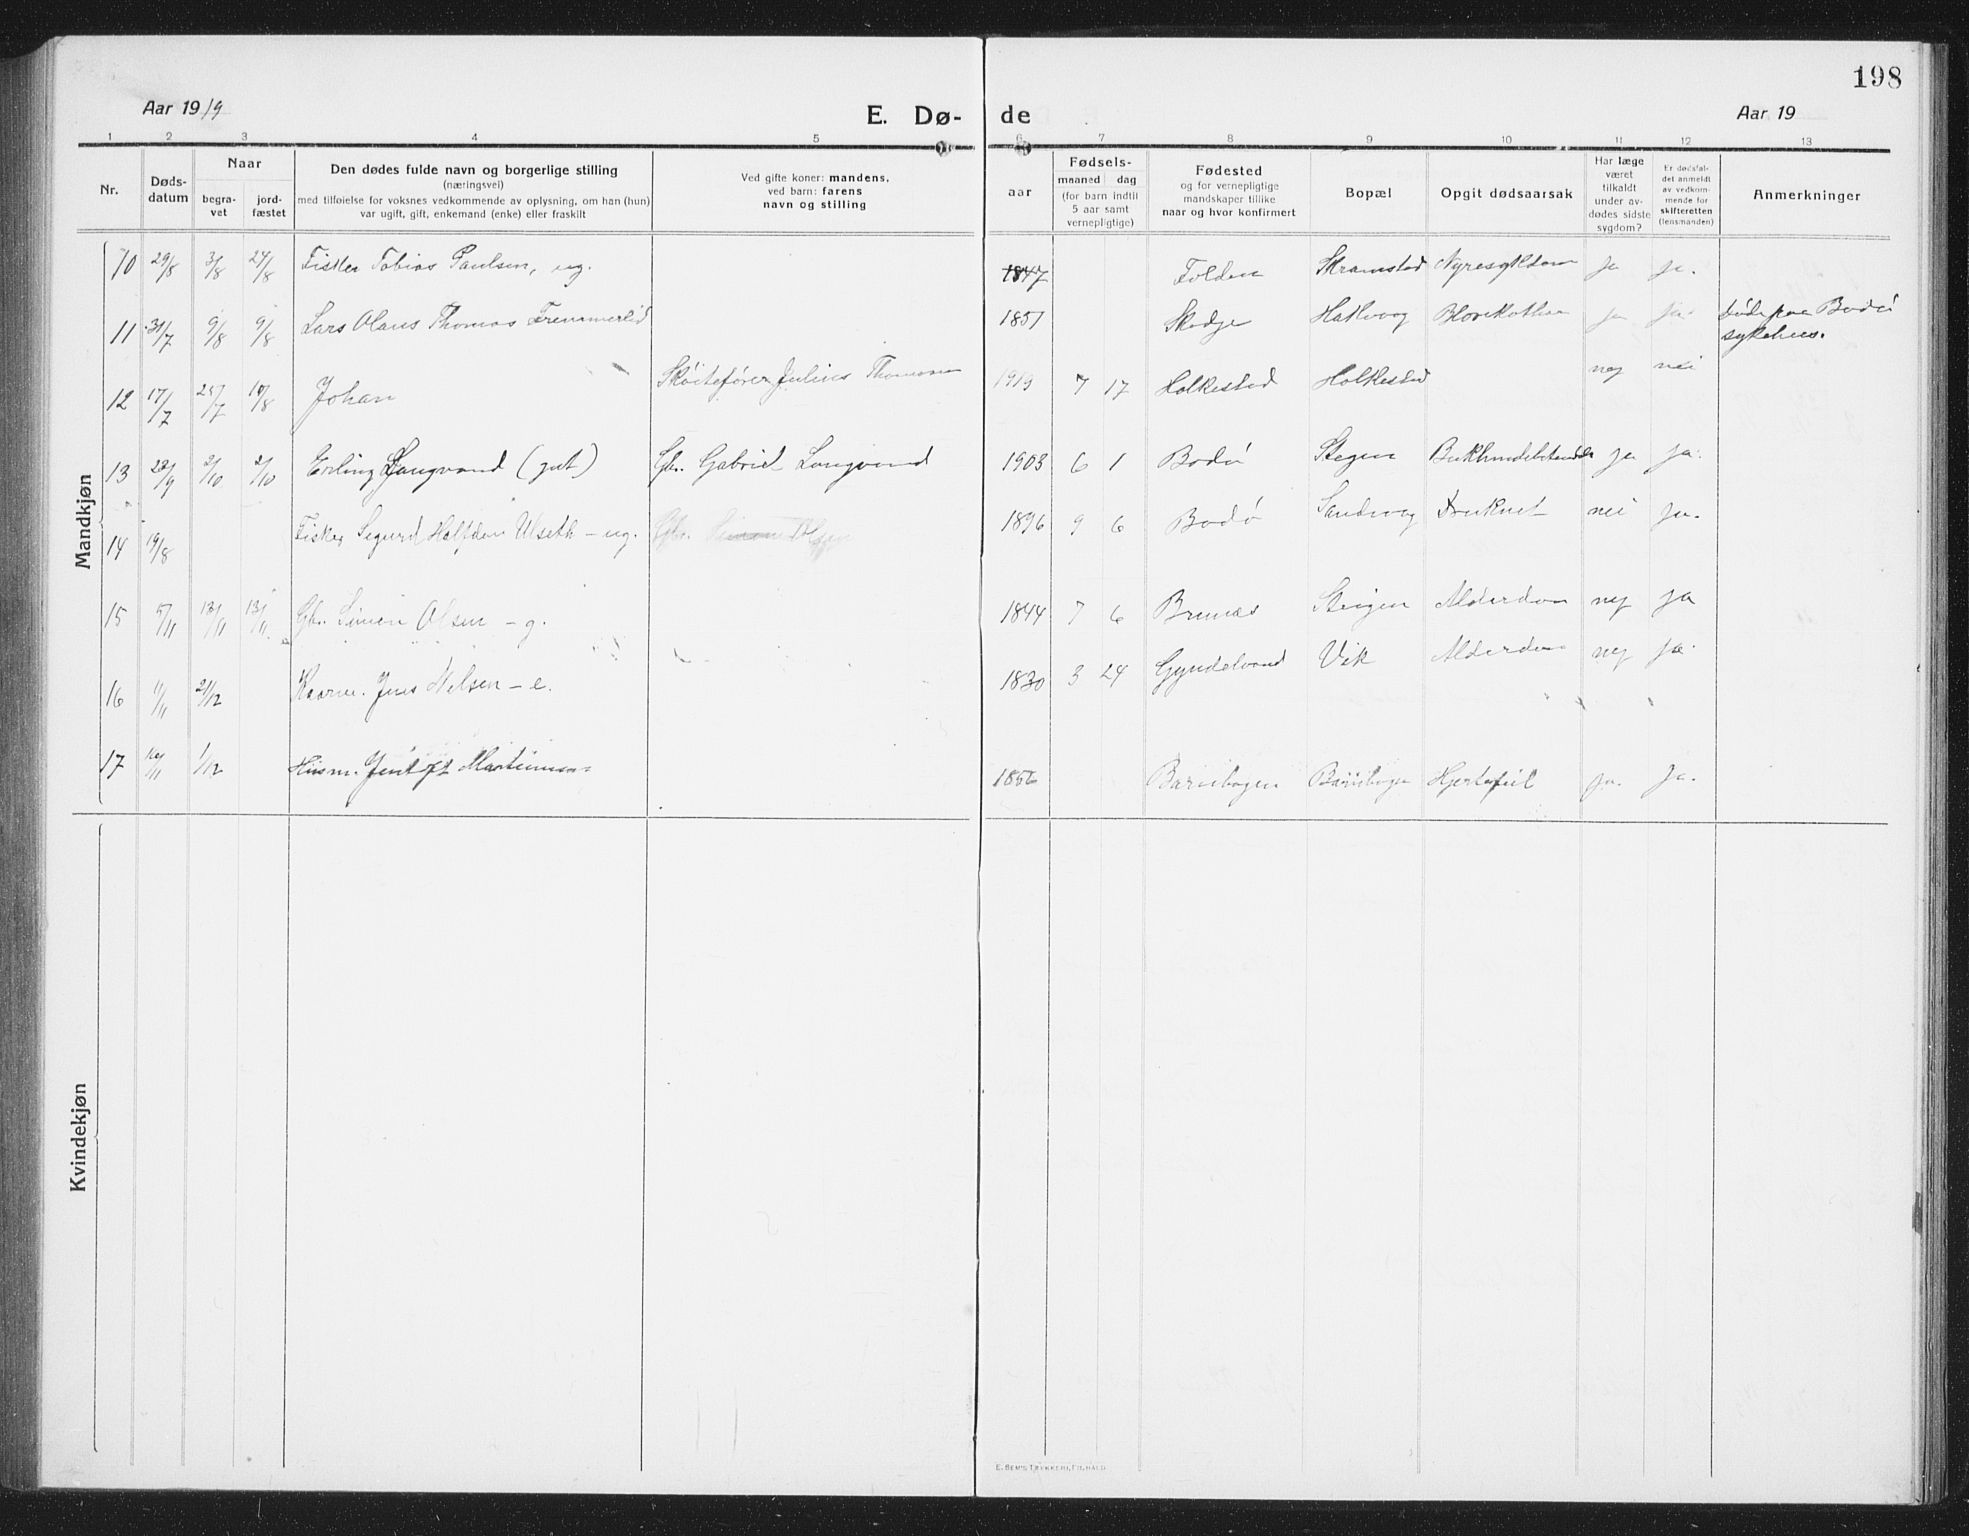 198
Aar 1919
E. Dø-
de
Aar 19
1 2 3 4 5 6 7 8 9 10 11 12 13
Nr.
Døds-
datum
Naar
begra-
vet
jord-
fæstet
Den dødes fulde navn og borgerlige stilling
(næringsvei)
med tilføielse for voksnes vedkommende av oplysning, om han (hun)
var ugift, gift, enkemand (enke) eller fraskilt
Ved gifte koner: mandens,
ved barn: farens
navn og stilling
aar
Fødsels-
maaned dag
(for barn indtil
5 aar samt
vernepligtige)
Fødested
og for vernepligtige
mandskaper tillike
naar og hvor konfirmert
Bopæl
Opgit dødsaarsak
Har læge
været
tilkaldt
under av-
dødes sidste
sygdom?
Er dødsfal-
det anmeldt
av vedkom-
mende for
skifteretten
(lensmanden)
Anmerkninger
Mandkjøn
10 29/8 3/8 24/8 Fisker Tobias Paulsen, ug. 1847 Folden Skramstad Nyresykdom ja ja.
11 31/7 9/8 9/8 Lars Olaus Thomas Fremmerlid 1851 Skodje Hatlvaag ja ja døde paa Bodø
sykehus.
12 17/7 25/7 10/8 Johan Skøitefører Julius Thomassen 1919 7 17 Holkestad Holkestad nej nei
13 22/9 2/10 2/10 Erling Langvand (gut) Gbr. Gabriel Langvand 1903 6 1 Bodø Stegen ja ja.
14 19/8 Fisker Sigurd Halfdan Ulseth - ug. Gbr. Simon Olsen 1896 9 6 Bodø Sandvag Druknet nei ja.
15 5/11 13/11 13/11 Gbr. Simon Olsen - g. 1844 7 6 Brunæs Steigen Alderdom nej ja
16 11/11 21/12 Kaarm. Jens Nilsen - e. 1830 3 24 Gyndelvand Vik Alderdom nej ja.
17 1/12 Husm. Jentoft Martinussen 1856 Barübogen Barübogen Hjertefeil ja. ja.
Kvindekjøn
E. SEM'S TRYKKERI, FR.HALD